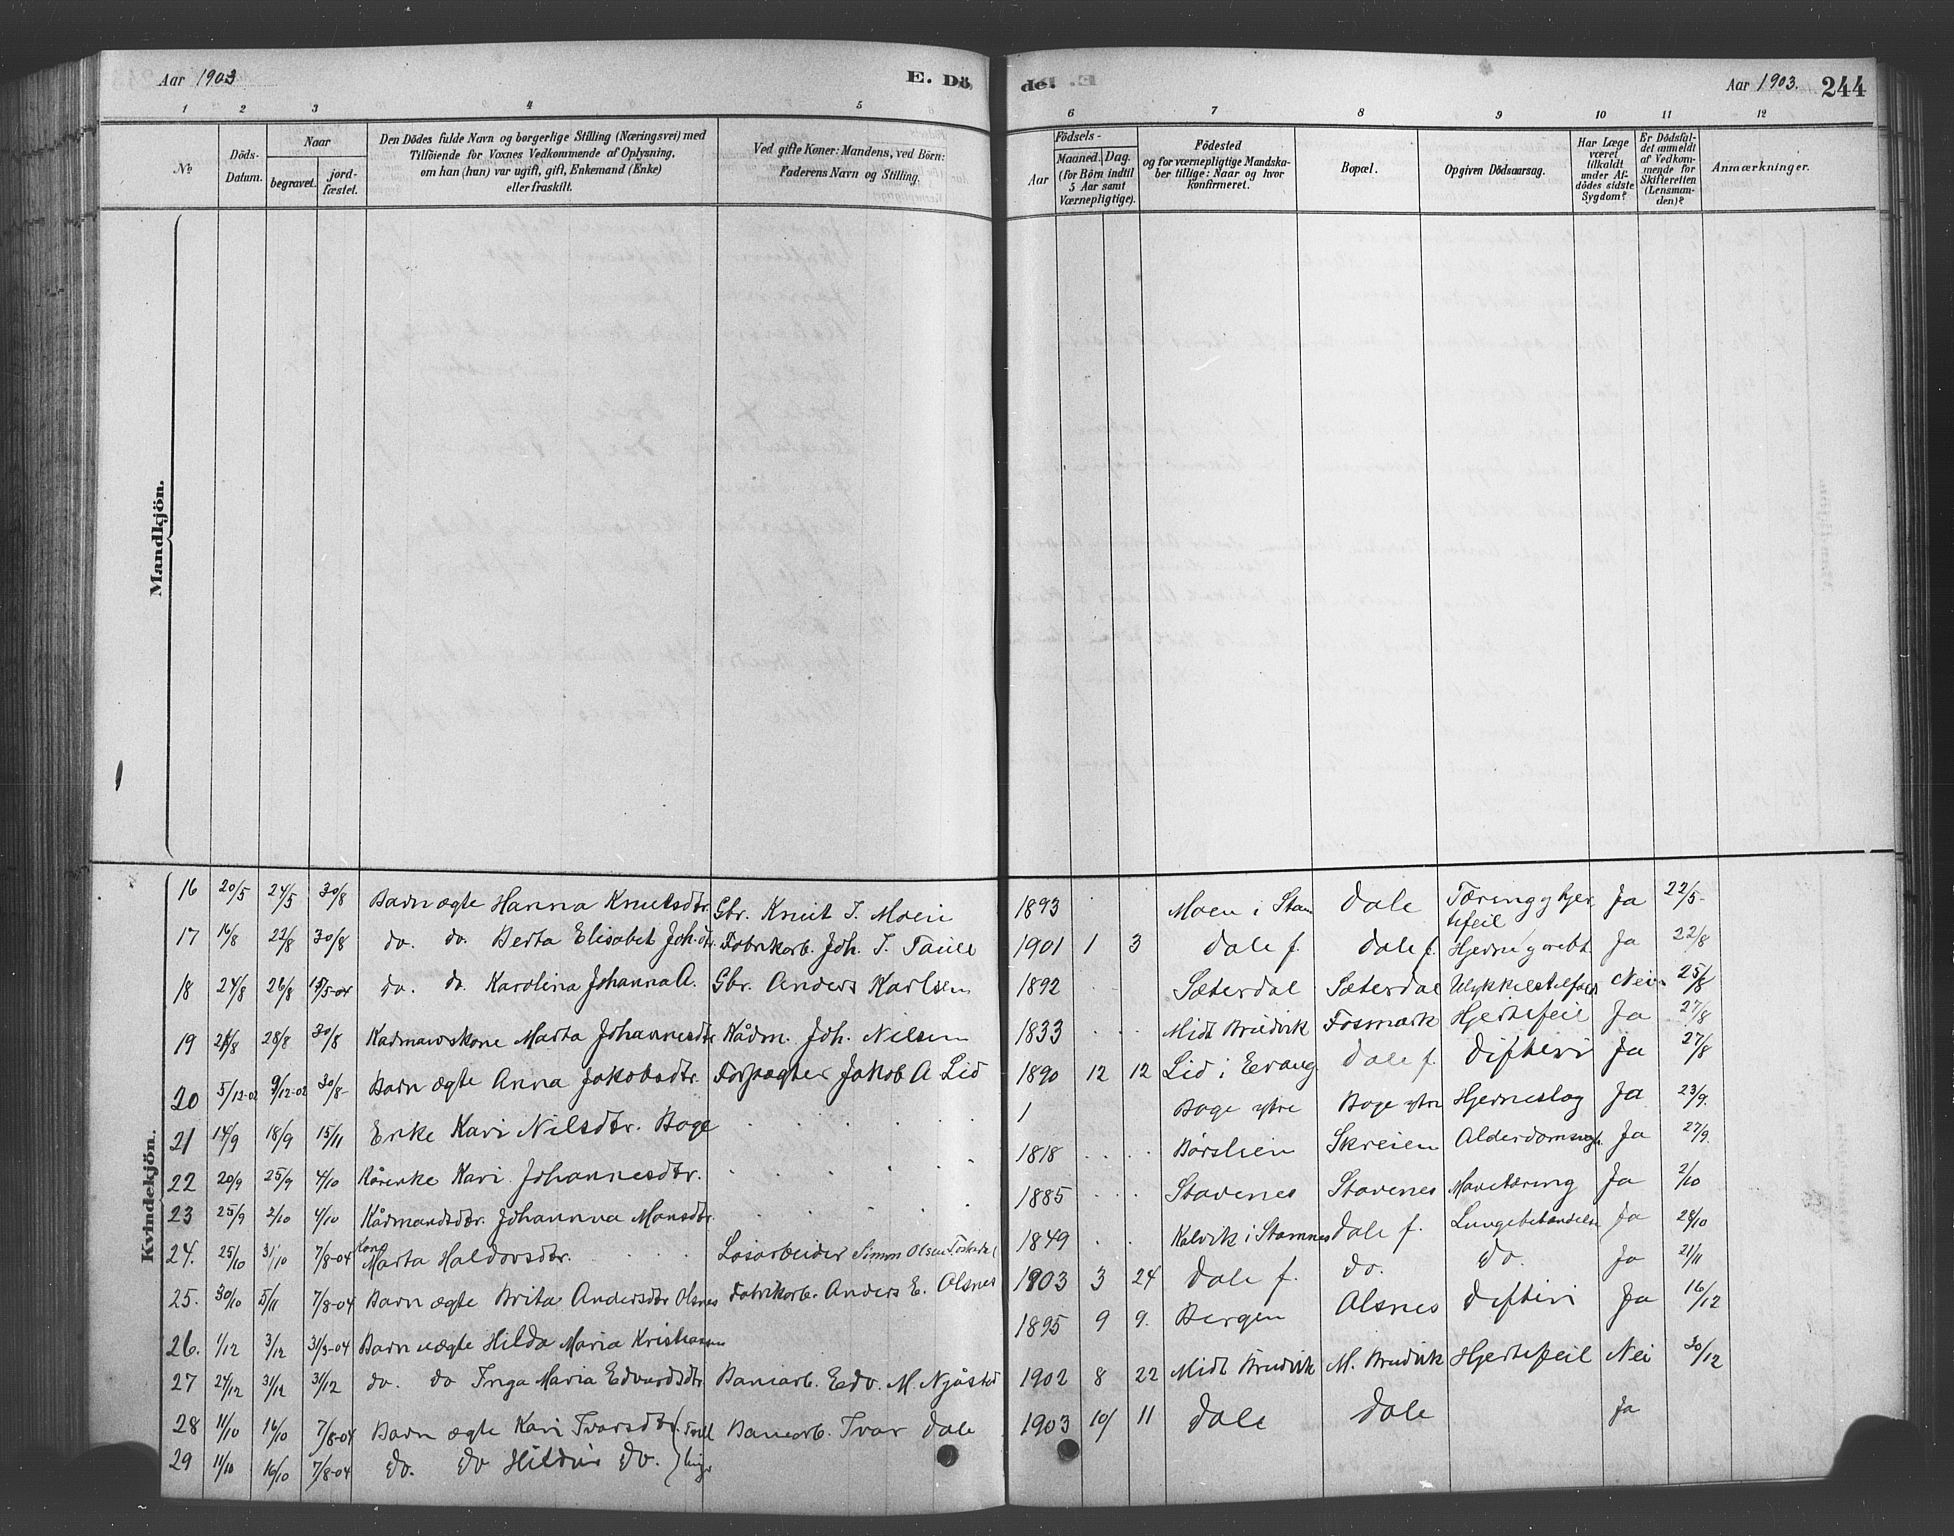 Aar 1903
E. Dö
de.
Aar 1903.
244
1 2 3 4 5
6 7 8 9 10 11 12
No
Döds-Datum.
Naar
begravet.
jord-fæstet.
Den Dödes fulde Navn og borgerlige Stilling (Næringsvei) med
Tilföiende for Voxnes Vedkommende af Oplysning,
om han (hun) var ugift, gift, Enkemand (Enke)
eller fraskilt.
Ved gifte Koner: Mandens, ved Börn:
Faderens Navn og Stilling.
Födsels-
Aar
Maaned. Dag.
(for Börn indtil
5 Aar samt
Værnepligtige).
Födested
og for værnepligtige Mandska-
ber tillige: Naar og hvor
konfirmeret.
Bopæl.
Opgiven Dödsaarsag.
Har Læge
været
tilkaldt
under Af-
dödes sidste
Sygdom?
Er Dödsfal-
det anmeldt
af Vedkom-
mende for
Skifteretten
(Lensman-
den)?
Anmærkninger.
Mandkjön.
Kvindekjön.
16 20/5 24/5 30/8 Barn ægte Hanna Knutsdtr. Gbr. Knut J. Moen 1893 Moen i Stam Dale Tæring g hjer
tefeil Ja 22/5
17 16/8 22/8 30/8 do. do. Berta Elisabet Joh.dtr. Fabrikarb. Joh. J. Taule 1901 1 3 Dale f. Dale f. Ja 22/8
18 24/8 26/8 15/5-04 do. do. Karolina Johanna A. Gbr. Anders Karlsen 1892 Sæterdal Sæterdal Ulykkestilfæld Nei 25/8
19 28/8 30/8 Kaarmandskone Marta Johannesdtr Kårm. Joh. Nilsen 1833 Midt Bruvik Fosmark Hjertefeil Ja 27/8
20 5/12-02 9/12-02 30/8 Barn ægte Anna Jakobsdtr. Forpagter Jakob A Lid 1890 12 12 Lid i Evang Dale f. Difteri Ja 27/8
21 14/9 18/9 15/11 Enke Kari Nilsdtr. Boge 1 Boge ytre Boge ytre Hjerneslag Ja 23/9.
22 20/9 25/9 4/10 Kårenke Kari Johannesdtr. 1818 Børslien Skreien Alderdomssvagh. Ja 27/9.
23 25/9 2/10 4/10 Kårmandsdtr. Johanna Monsdtr. 1885 Stavenes Stavenes Mavetæring Ja 2/10
24. 25/10 31/10 7/8-04 Kone Marta Haldorsdtr. Løsarbeider Simon Olsen 1849 Kalvik i Stamnes Dale f. Lungebetændelse Ja 28/10
25. 30/10 5/11 7/8-04 Barn ægte Brita Andersdtr Olsnes Fabrikarb. Anders E. Olsnes 1903 3 24 Dale f. do. do. Ja 21/11
26. 1/12 3/12 31/3-04 Barn uægte Hilda Maria Kristiansen 1895 9 9. Bergen Olsnes Difteri Ja 16/12
27 24/12 31/12 31/12 do. do Inga Maria Edvardsdtr Banearb. Edv. M. Njåstad 1902 8 22 Midt Bruvik M. Bruvik Hjertefeil Nei 30/12
28 11/10 16/10 7/8-04 Barn ægte Kari Ivarsdtr. } Tvil Banearb. Ivar Dale 1903 10 11 Dale Dale Ja
29 11/10 16/10 7/8-04 do. do Hildur do. } linger